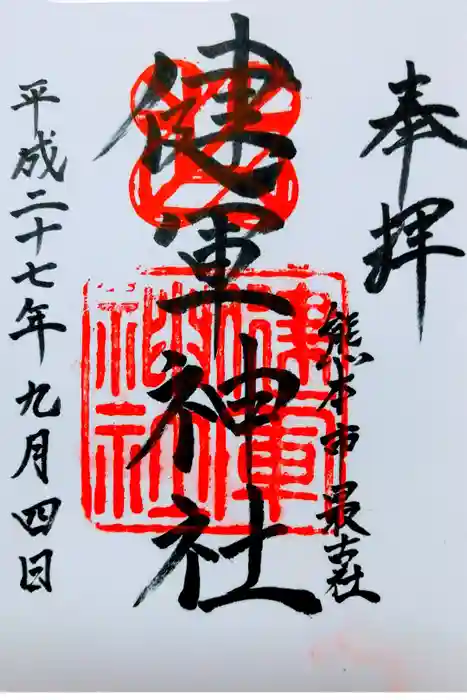 奉拝
熊本市最古社
健軍神社
健軍
神社
平成二十七年九月四日